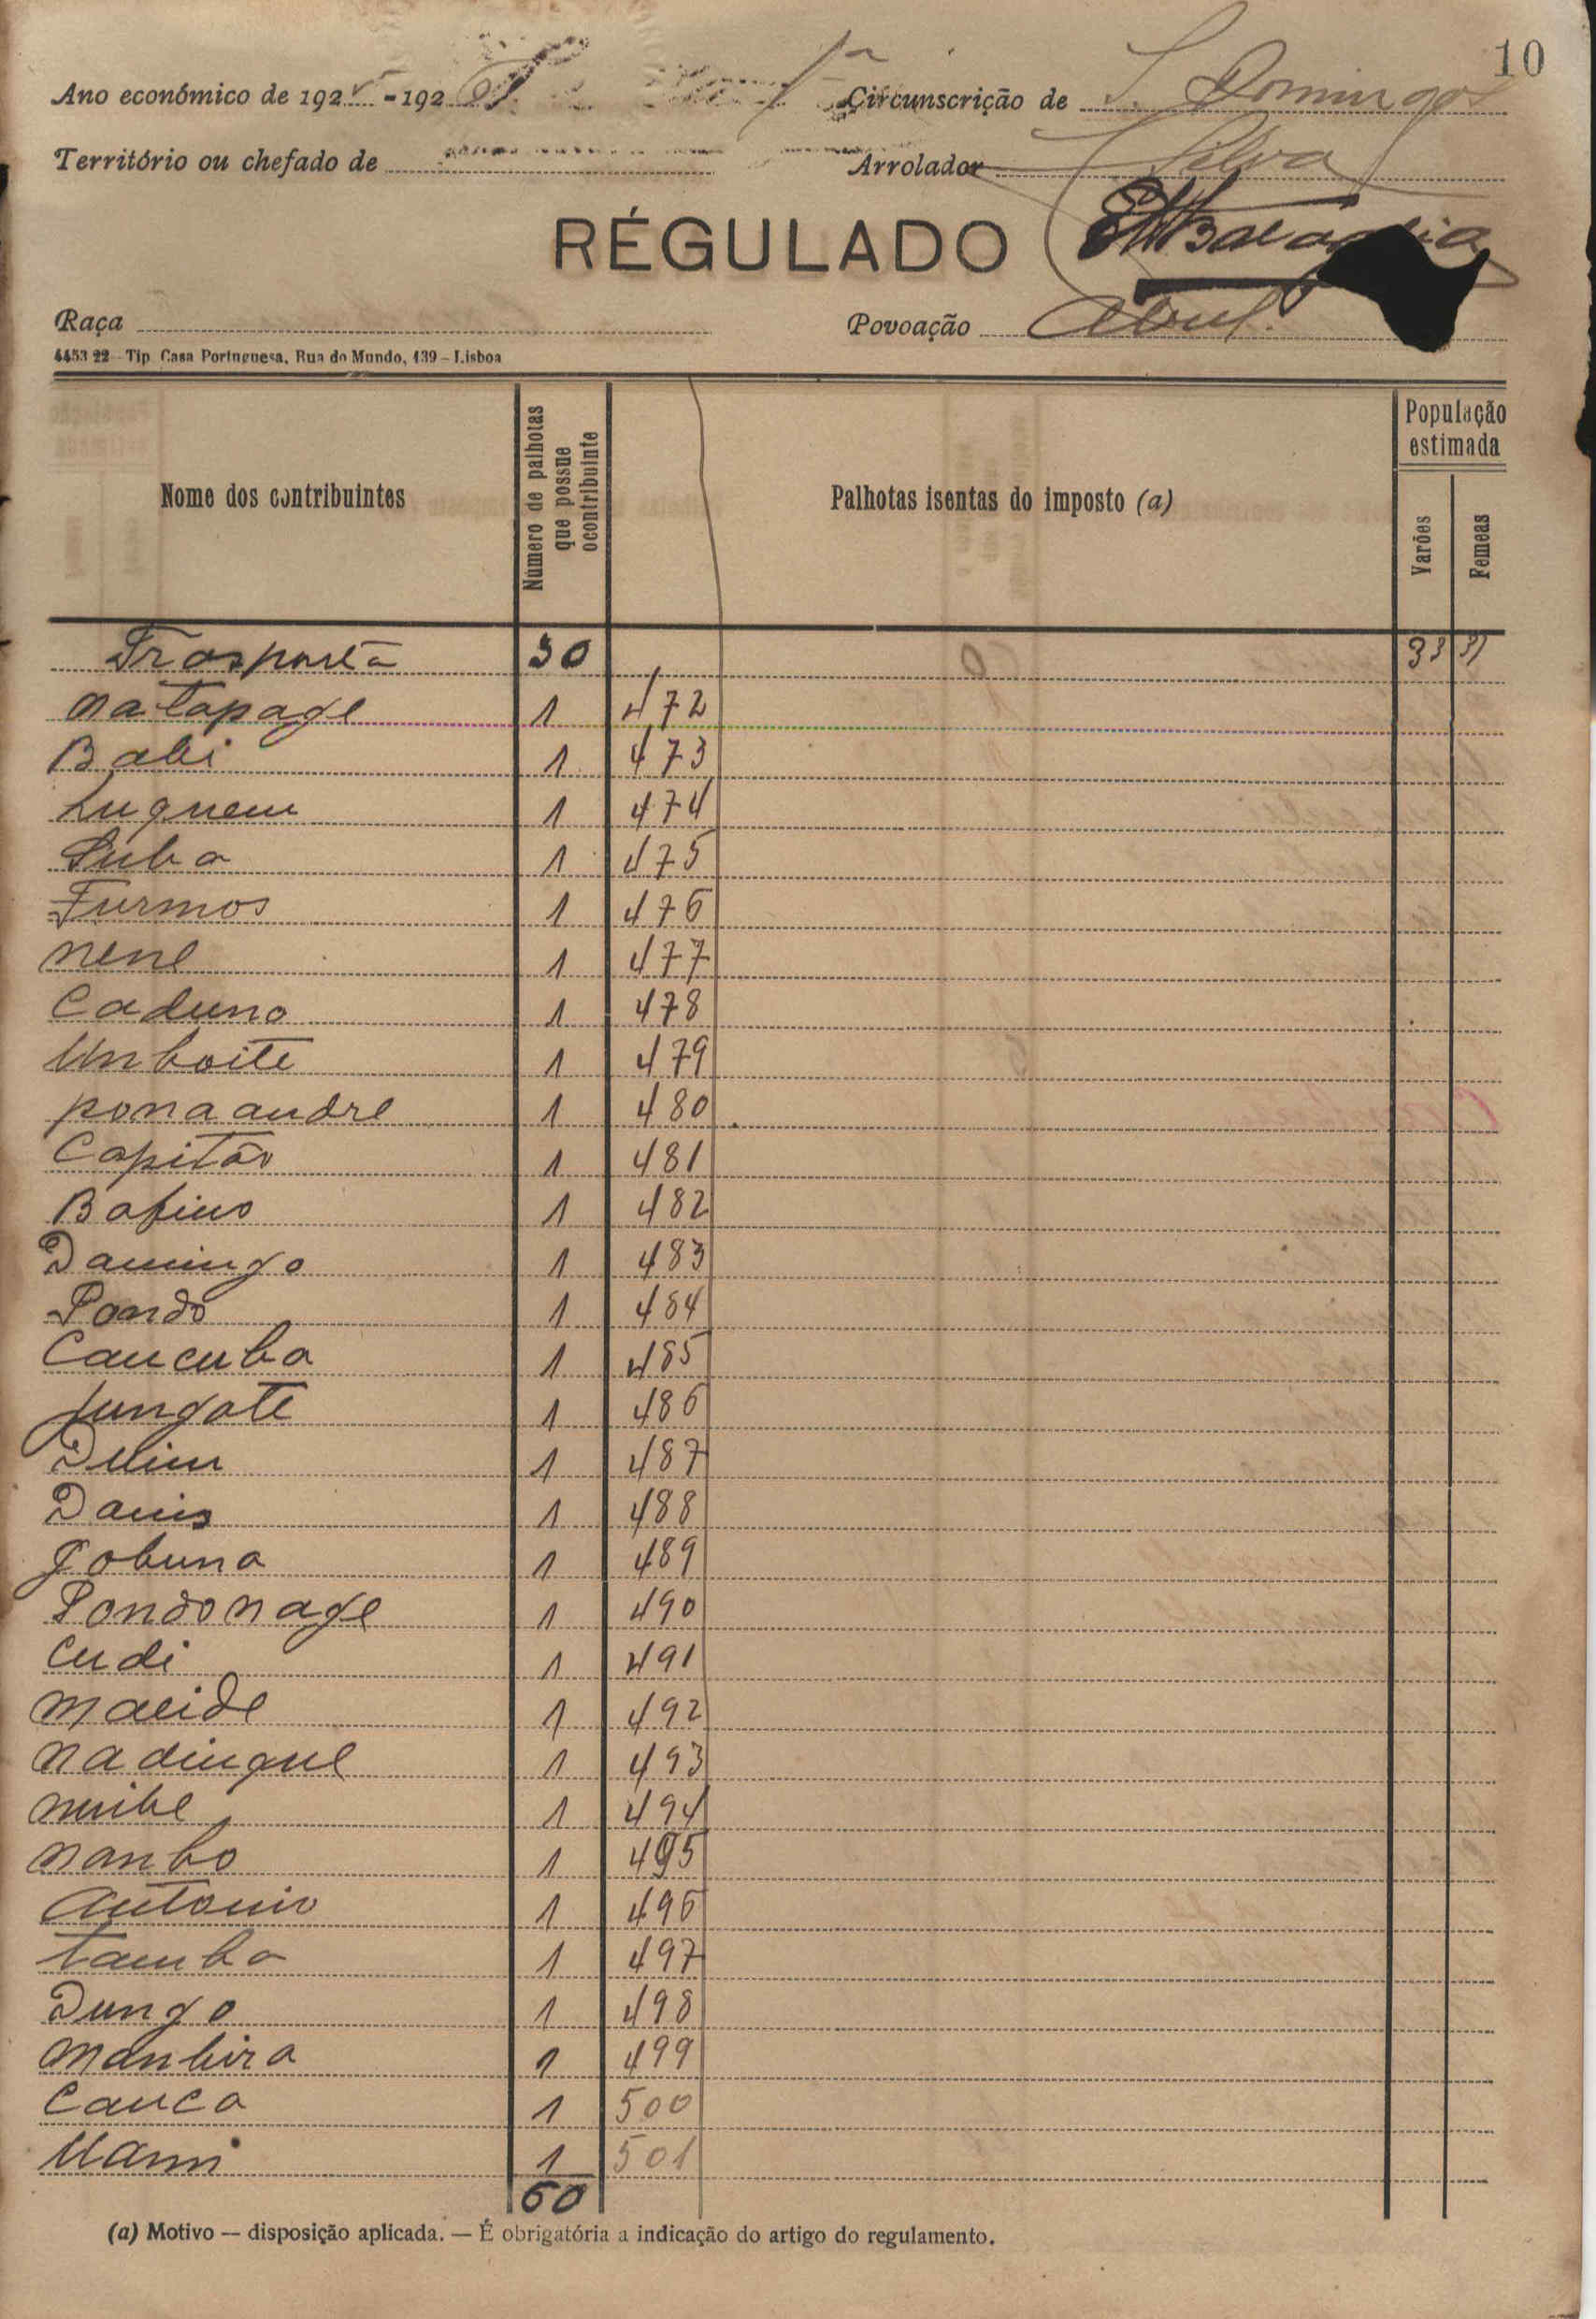 10
Ano económico de 1925-192 Circunscrição de S. Domingos
Território ou chefado de Arrolador Silva
RÉGULADO
Raça Povoação
4453 22 - Tip Casa Portuguesa, Rua do Mundo, 139 - Lisboa
Nome dos contribuintes Número de palhotas que possue ocontribuinte Palhotas isentas do imposto (a) População estimada Varões Femeas
Trasporta 30 33 31
Natapage 1 472
Babi 1 473
Luquem 1 474
Suba 1 475
Furmos 1 476
nene 1 477
Caduno 1 478
Umboite 1 479
pona andre 1 480
Capitão 1 481
Bafino 1 482
Damingo 1 483
Pondo 1 484
Caucuba 1 485
Jungote 1 486
1 487
Danis 1 488
Jobuna 1 489
Pondo nage 1 490
Cudi 1 491
Maeide 1 492
Nadinque 1 493
1 494
Nanbo 1 495
Antonio 1 496
Tamba 1 497
Dungo 1 498
Manbira 1 499
Cauca 1 500
1 501
60
(a) Motivo — disposição aplicada. — É obrigatória a indicação do artigo do regulamento.